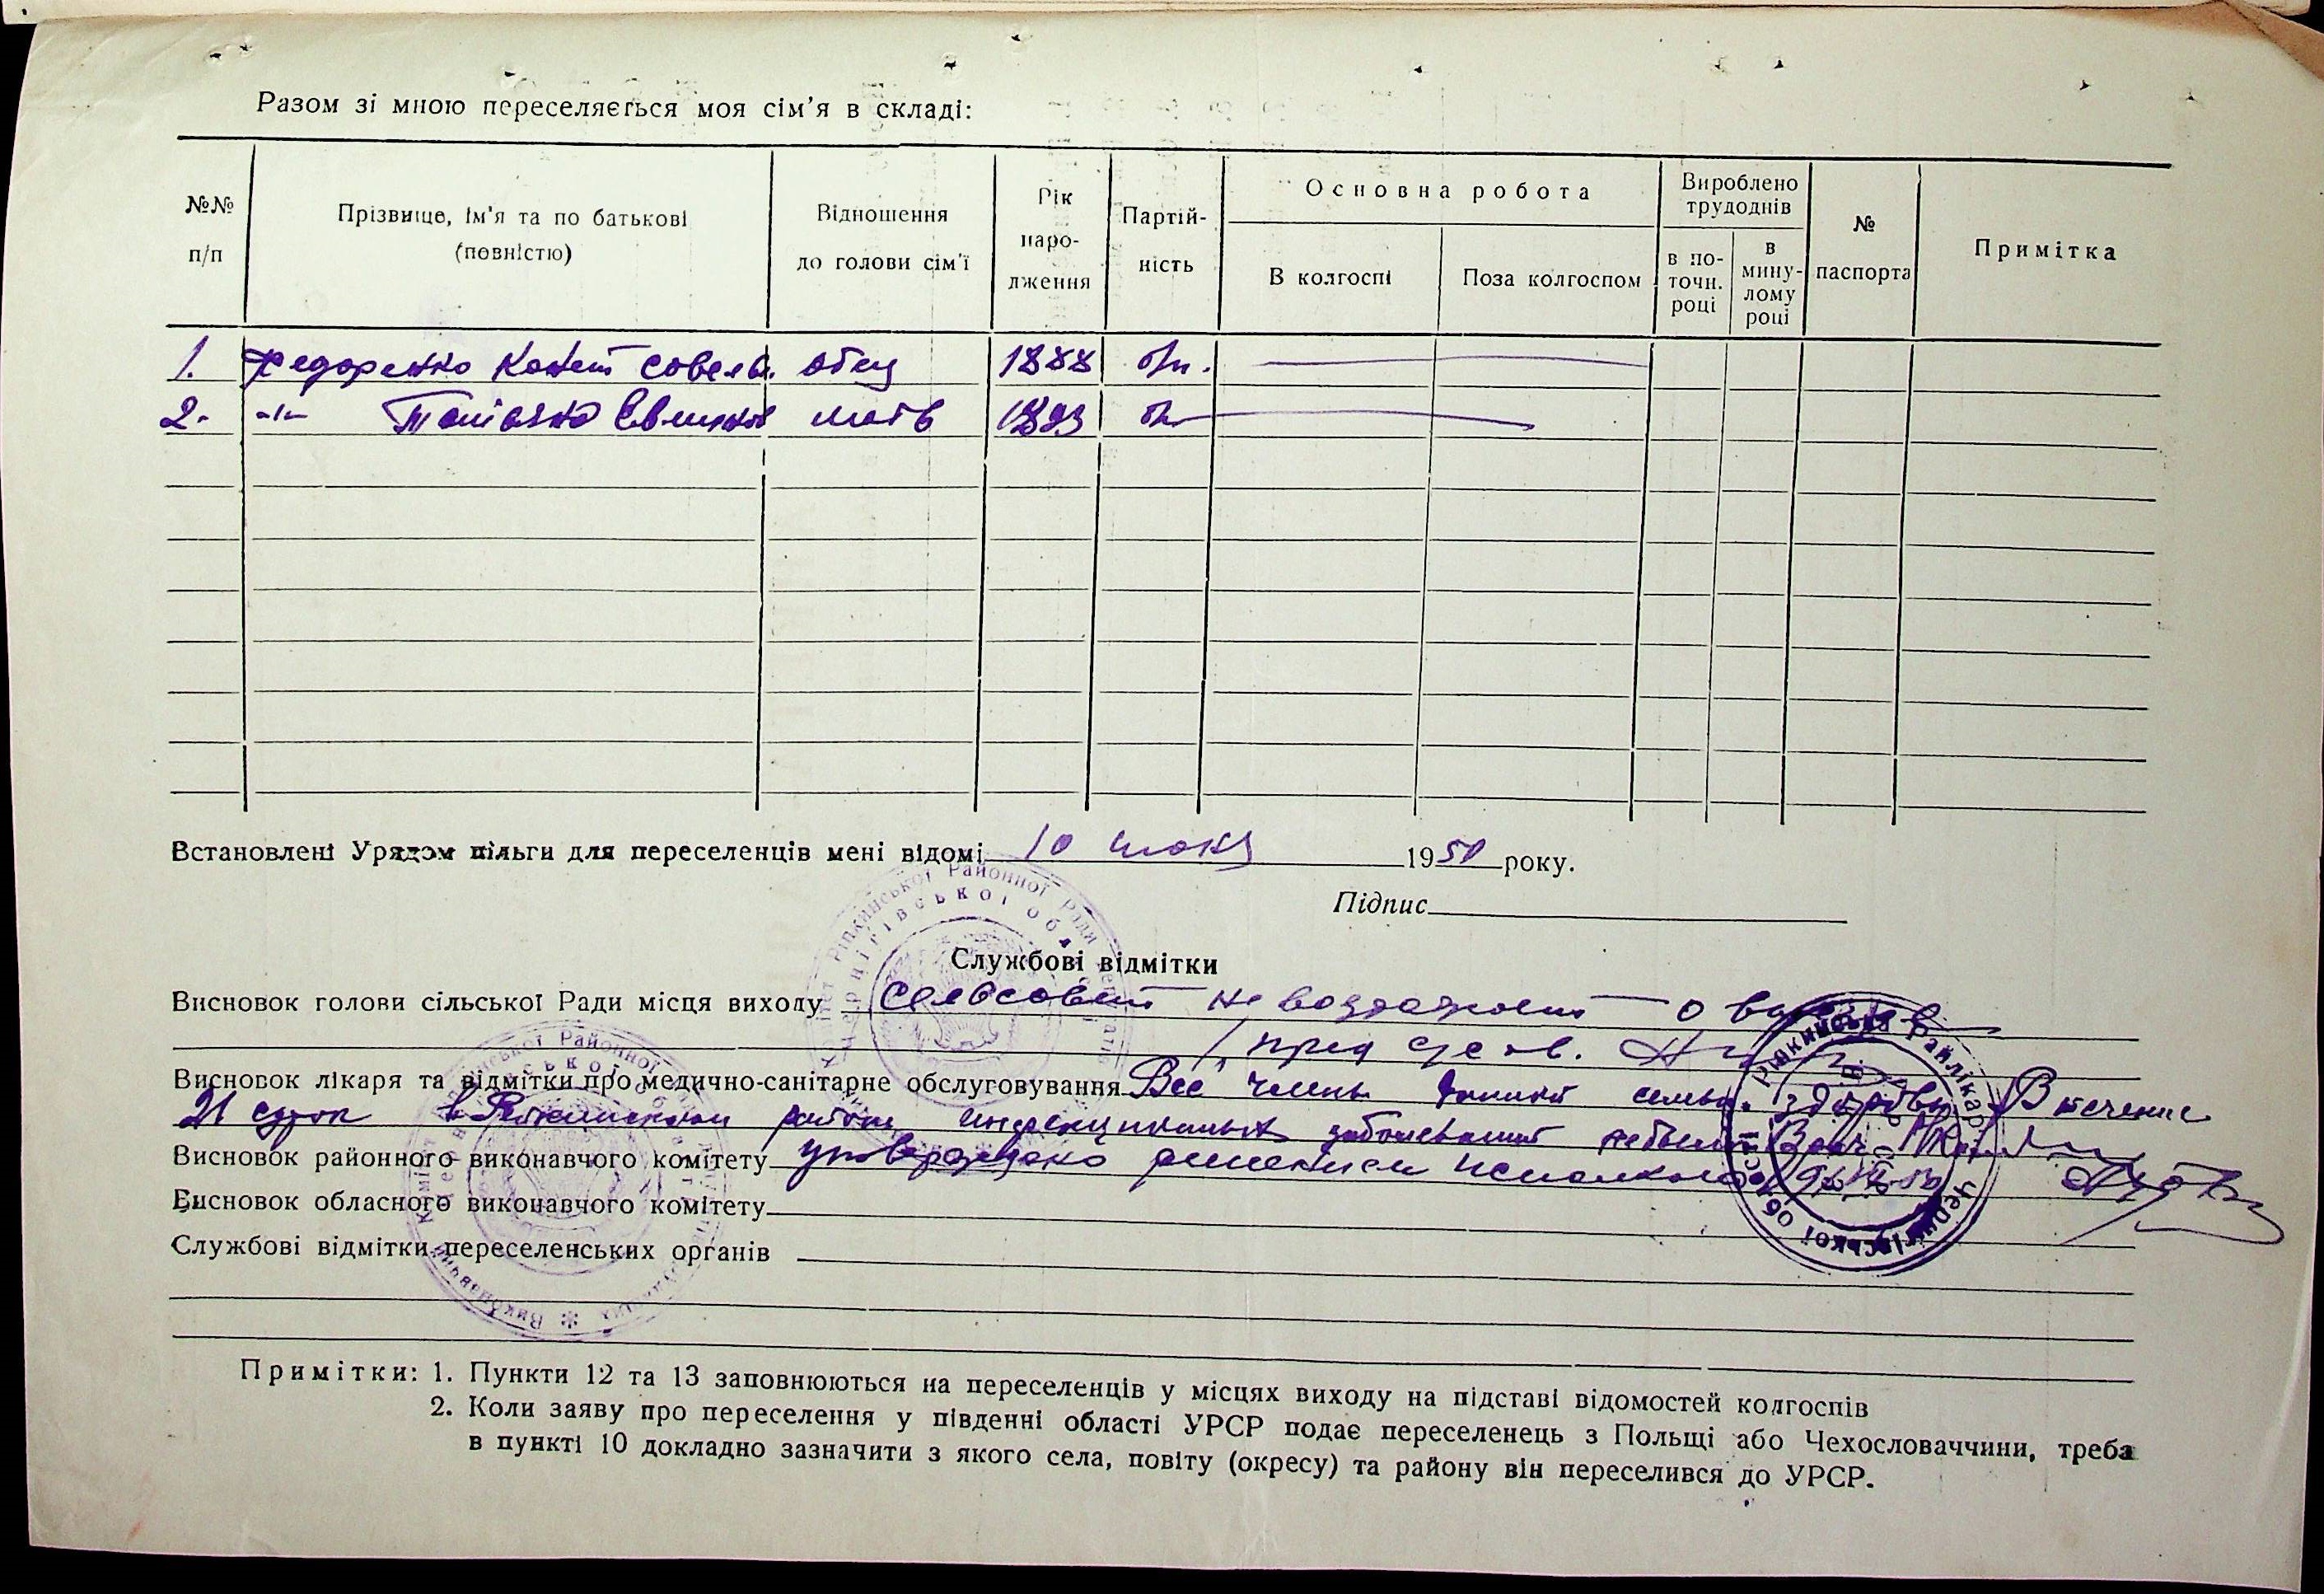 Разом зі мною переселяється моя сім'я в складі:
№№ п/п
Прізвище, ім'я та по батькові (повністю)
Відношення до голови сім'ї
Рік наро-дження
Партій-ність
Основна робота
В колгоспі
Поза колгоспом
Вироблено трудоднів
в по-точн. році
в мину-лому році
№ паспорта
Примітка
1. Федоренко отец 1888 б/п.
2. -"- мать 1893 бп
Встановлені Урядом пільги для переселенців мені відомі 10 июня 1950 року.
Підпис
Службові відмітки
Висновок голови сільської Ради місця виходу Сельсовет не возражает о
пред с/сов.
Висновок лікаря та відмітки про медично-санітарне обслуговування Все члены данной семьи здоровы В течение
21 суток в Репкинском районе инфекционных заболеваний не было Врач
Висновок районного виконавчого комітету утверждено решением исполкома
Висновок обласного виконавчого комітету
Службові відмітки переселенських органів
Примітки: 1. Пункти 12 та 13 заповнюються на переселенців у місцях виходу на підставі відомостей колгоспів
2. Коли заяву про переселення у південні області УРСР подає переселенець з Польщі або Чехословаччини, треба
в пункті 10 докладно зазначити з якого села, повіту (окресу) та району він переселився до УРСР.